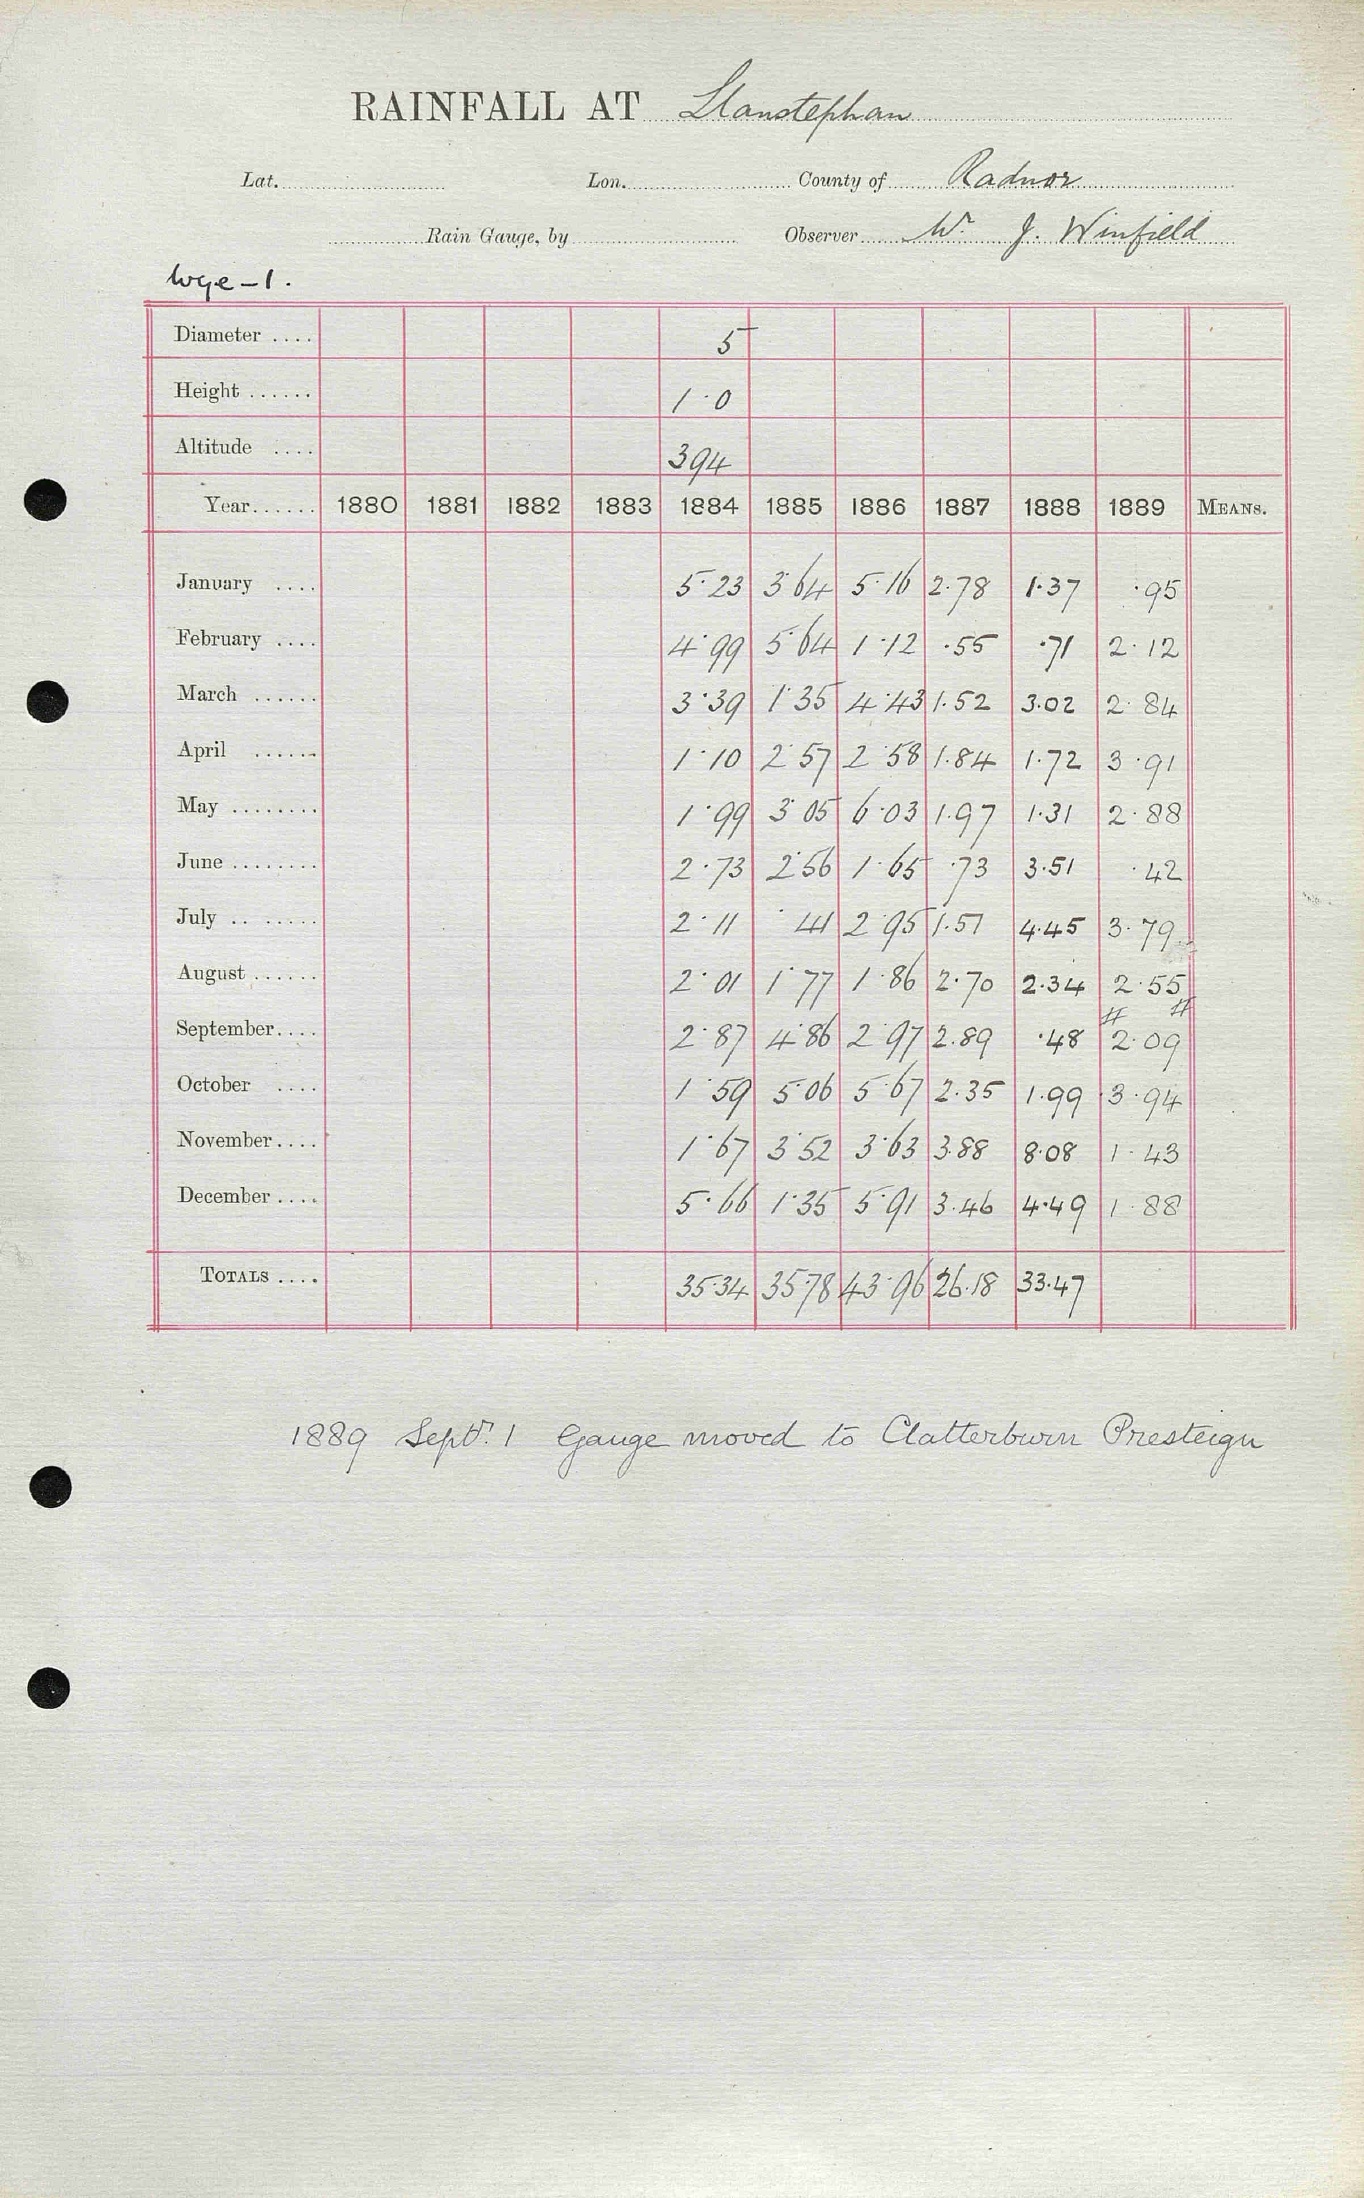 RAINFALL AT Llanstephan
Lat. Lon. County of Radnor
Rain Gauge, by Observer Mr. J. Winfield
Wye-1.
Diameter .... 5
Height ...... 1·0
Altitude .... 394
Year...... 1880 1881 1882 1883 1884 1885 1886 1887 1888 1889 MEANS.
January .... 5·23 3·64 5·16 2·78 1·37 ·95
February .... 4·99 5·64 1·12 ·55 ·71 2·12
March ...... 3·39 1·35 4·43 1·52 3·02 2·84
April ...... 1·10 2·57 2·58 1·84 1·72 3·91
May ........ 1·99 3·05 6·03 1·97 1·31 2·88
June ........ 2·73 2·56 1·65 ·73 3·51 ·42
July .. ..... 2·11 ·41 2·95 1·51 4·45 3·79
August ...... 2·01 1·77 1·86 2·70 2·34 2·55
# #
September.... 2·87 4·86 2·97 2·89 ·48 2·09
October .... 1·59 5·06 5·67 2·35 1·99 3·94
November.... 1·67 3·52 3·63 3·88 8·08 1·43
December .... 5·66 1·35 5·91 3·46 4·49 1·88
TOTALS .... 35·34 35·78 43·96 26·18 33·47
1889 Septr. 1 Gauge moved to Clatterburn Presteign